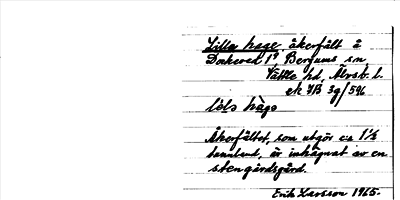 Lilla hage åkerfält å
Dockered 1⁹, Bergums sn,
Vättle hd, Älvsb. l.
ek 7B 3g/596
lɩ̀la hàgə
Åkerfältet, som utgör c:a 1½
tunnland, är inhägnat av en
stengärdsgård.
Erik Larsson 1965.